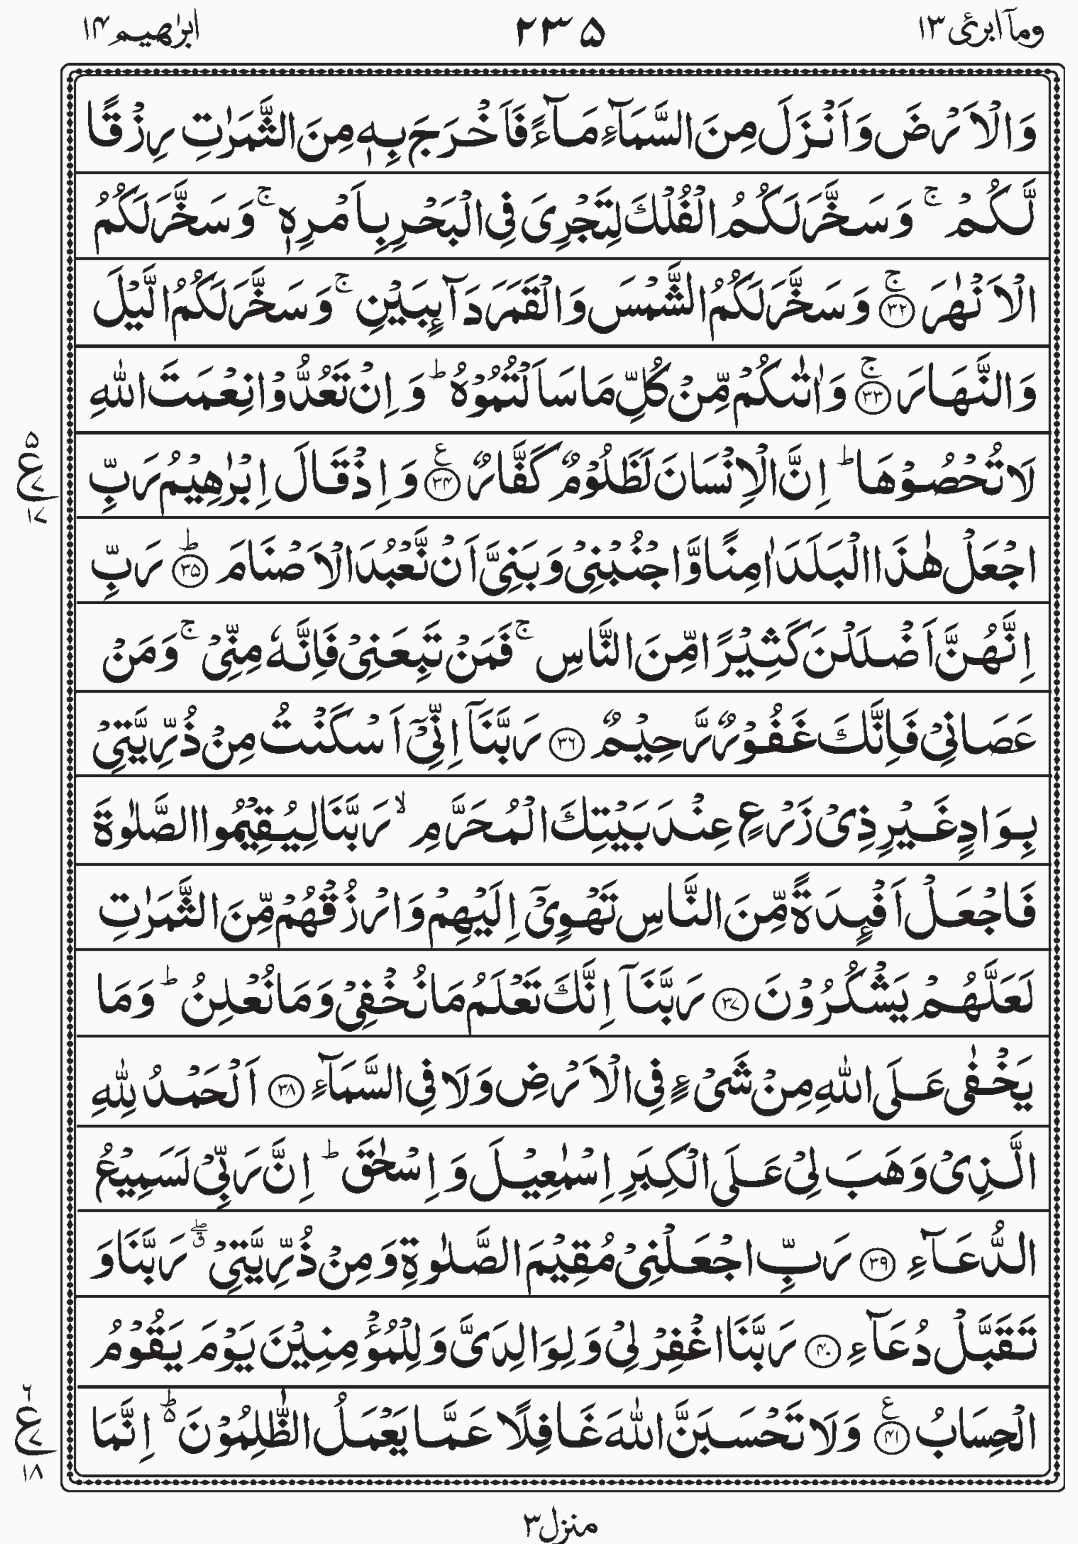 ابرٰهیم ۱۴ ۲۳۵ ومآ ابرئ ۱۳
وَالۡاَرۡضَ وَاَنۡزَلَ مِنَ السَّمَآءِ مَآءً فَاَخۡرَجَ بِهٖ مِنَ الثَّمَرٰتِ رِزۡقًا
لَّكُمۡ‌ ۚ وَسَخَّرَ لَكُمُ الۡفُلۡكَ لِتَجۡرِىَ فِى الۡبَحۡرِ بِاَمۡرِهٖ‌ ۚ وَسَخَّرَ لَكُمُ
الۡاَنۡهٰرَ‌ ۚ‏﴿۳۲﴾ وَسَخَّرَ لَكُمُ الشَّمۡسَ وَالۡقَمَرَ دَآٮِٕبَيۡنِ‌ ۚ وَسَخَّرَ لَكُمُ الَّيۡلَ
وَالنَّهَارَ‌ ۚ‏﴿۳۳﴾ وَاٰتٰٮكُمۡ مِّنۡ كُلِّ مَا سَاَلۡتُمُوۡهُ‌ ؕ وَاِنۡ تَعُدُّوۡا نِعۡمَتَ اللّٰهِ
لَا تُحۡصُوۡهَا ؕ اِنَّ الۡاِنۡسَانَ لَظَلُوۡمٌ كَفَّارٌ ﴿۳۴﴾ ع وَاِذۡ قَالَ اِبۡرٰهِيۡمُ رَبِّ
۵ ع ۷ ۱۷
اجۡعَلۡ هٰذَا الۡبَلَدَ اٰمِنًا وَّاجۡنُبۡنِىۡ وَبَنِىَّ اَنۡ نَّعۡبُدَ الۡاَصۡنَامَ ؕ‏﴿۳۵﴾ رَبِّ
اِنَّهُنَّ اَضۡلَلۡنَ كَثِيۡرًا مِّنَ النَّاسِ‌ ۚ فَمَنۡ تَبِعَنِىۡ فَاِنَّهٗ مِنِّىۡ‌ ۚ وَمَنۡ
عَصَانِىۡ فَاِنَّكَ غَفُوۡرٌ رَّحِيۡمٌ ﴿۳۶﴾ رَبَّنَاۤ اِنِّىۡۤ اَسۡكَنۡتُ مِنۡ ذُرِّيَّتِىۡ
بِوَادٍ غَيۡرِ ذِىۡ زَرۡعٍ عِنۡدَ بَيۡتِكَ الۡمُحَرَّمِ ۙ رَبَّنَا لِيُقِيۡمُوا الصَّلٰوةَ
فَاجۡعَلۡ اَفۡٮِٕدَةً مِّنَ النَّاسِ تَهۡوِىۡۤ اِلَيۡهِمۡ وَارۡزُقۡهُمۡ مِّنَ الثَّمَرٰتِ
لَعَلَّهُمۡ يَشۡكُرُوۡنَ ﴿۳۷﴾ رَبَّنَاۤ اِنَّكَ تَعۡلَمُ مَا نُخۡفِىۡ وَمَا نُعۡلِنُ‌ ؕ وَمَا
يَخۡفٰى عَلَى اللّٰهِ مِنۡ شَىۡءٍ فِى الۡاَرۡضِ وَلَا فِى السَّمَآءِ ﴿۳۸﴾ اَلۡحَمۡدُ لِلّٰهِ
الَّذِىۡ وَهَبَ لِىۡ عَلَى الۡكِبَرِ اِسۡمٰعِيۡلَ وَاِسۡحٰقَ‌ ؕ اِنَّ رَبِّىۡ لَسَمِيۡعُ
الدُّعَآءِ ﴿۳۹﴾ رَبِّ اجۡعَلۡنِىۡ مُقِيۡمَ الصَّلٰوةِ وَمِنۡ ذُرِّيَّتِىۡ ‌ۖ ق رَبَّنَا وَ
تَقَبَّلۡ دُعَآءِ ﴿۴۰﴾ رَبَّنَا اغۡفِرۡ لِىۡ وَلِـوَالِدَىَّ وَلِلۡمُؤۡمِنِيۡنَ يَوۡمَ يَقُوۡمُ
الۡحِسَابُ ﴿۴۱﴾ ع وَلَا تَحۡسَبَنَّ اللّٰهَ غَافِلًا عَمَّا يَعۡمَلُ الظّٰلِمُوۡنَ‌ ؕ ۵ اِنَّمَا
۶ ع ۷ ۱۸
منزل ۳